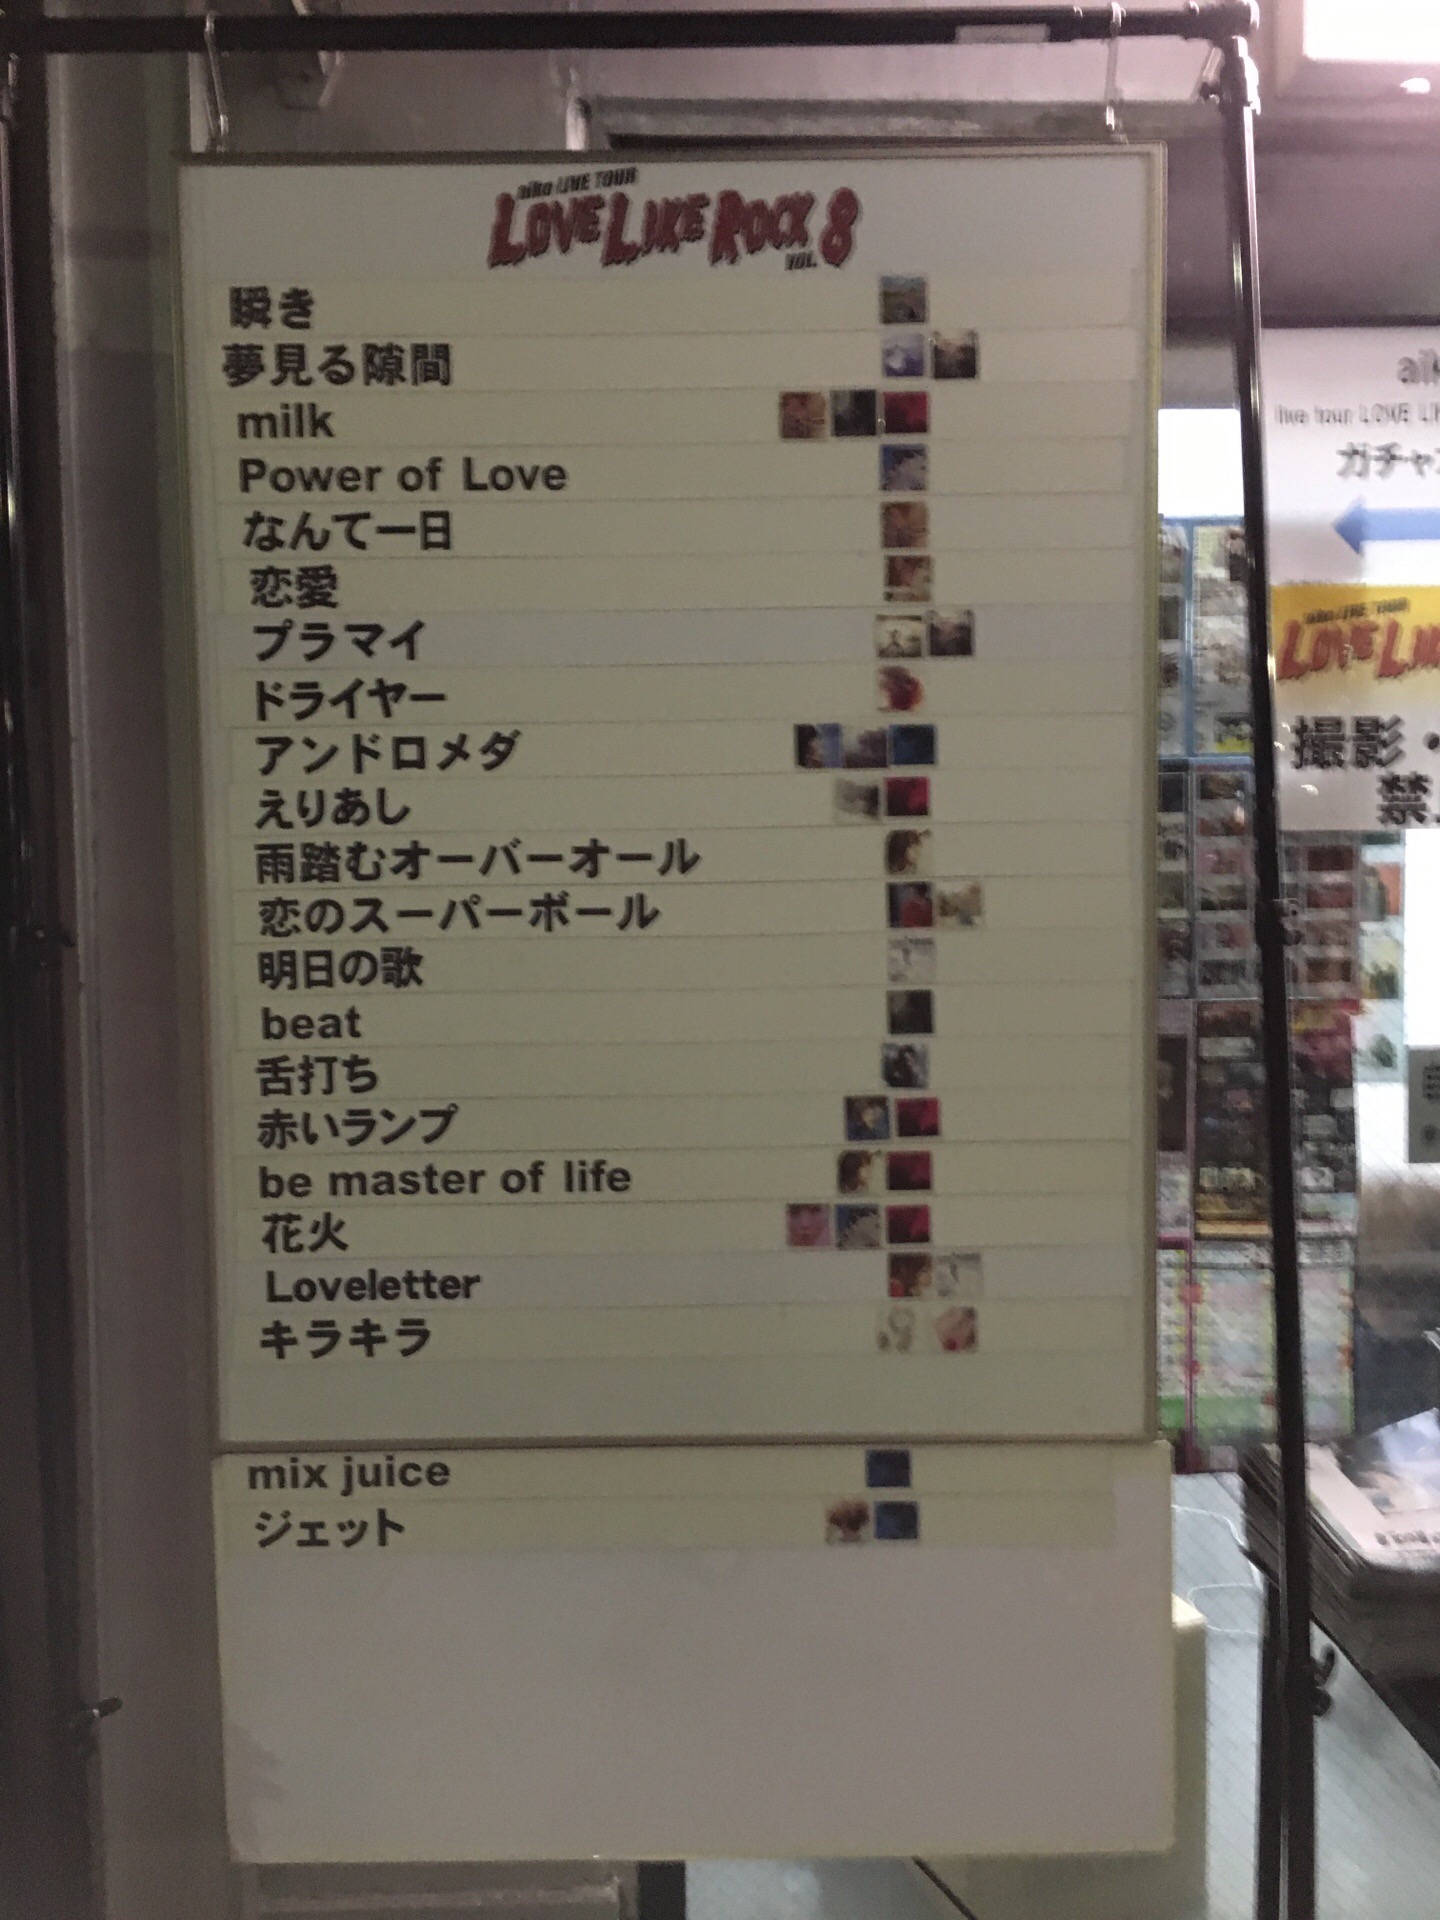 aiko LIVE TOUR
LOVE LIKE ROCK 8
VOL.
瞬き
夢見る隙間
milk
Power of Love
なんて一日
恋愛
プラマイ
ドライヤー
アンドロメダ
えりあし
雨踏むオーバーオール
恋のスーパーボール
明日の歌
beat
舌打ち
赤いランプ
be master of life
花火
Loveletter
キラキラ
mix juice
ジェット
live tour LOVE
ガチャ
aiko LIVE TOUR
LOVE
撮影・
禁